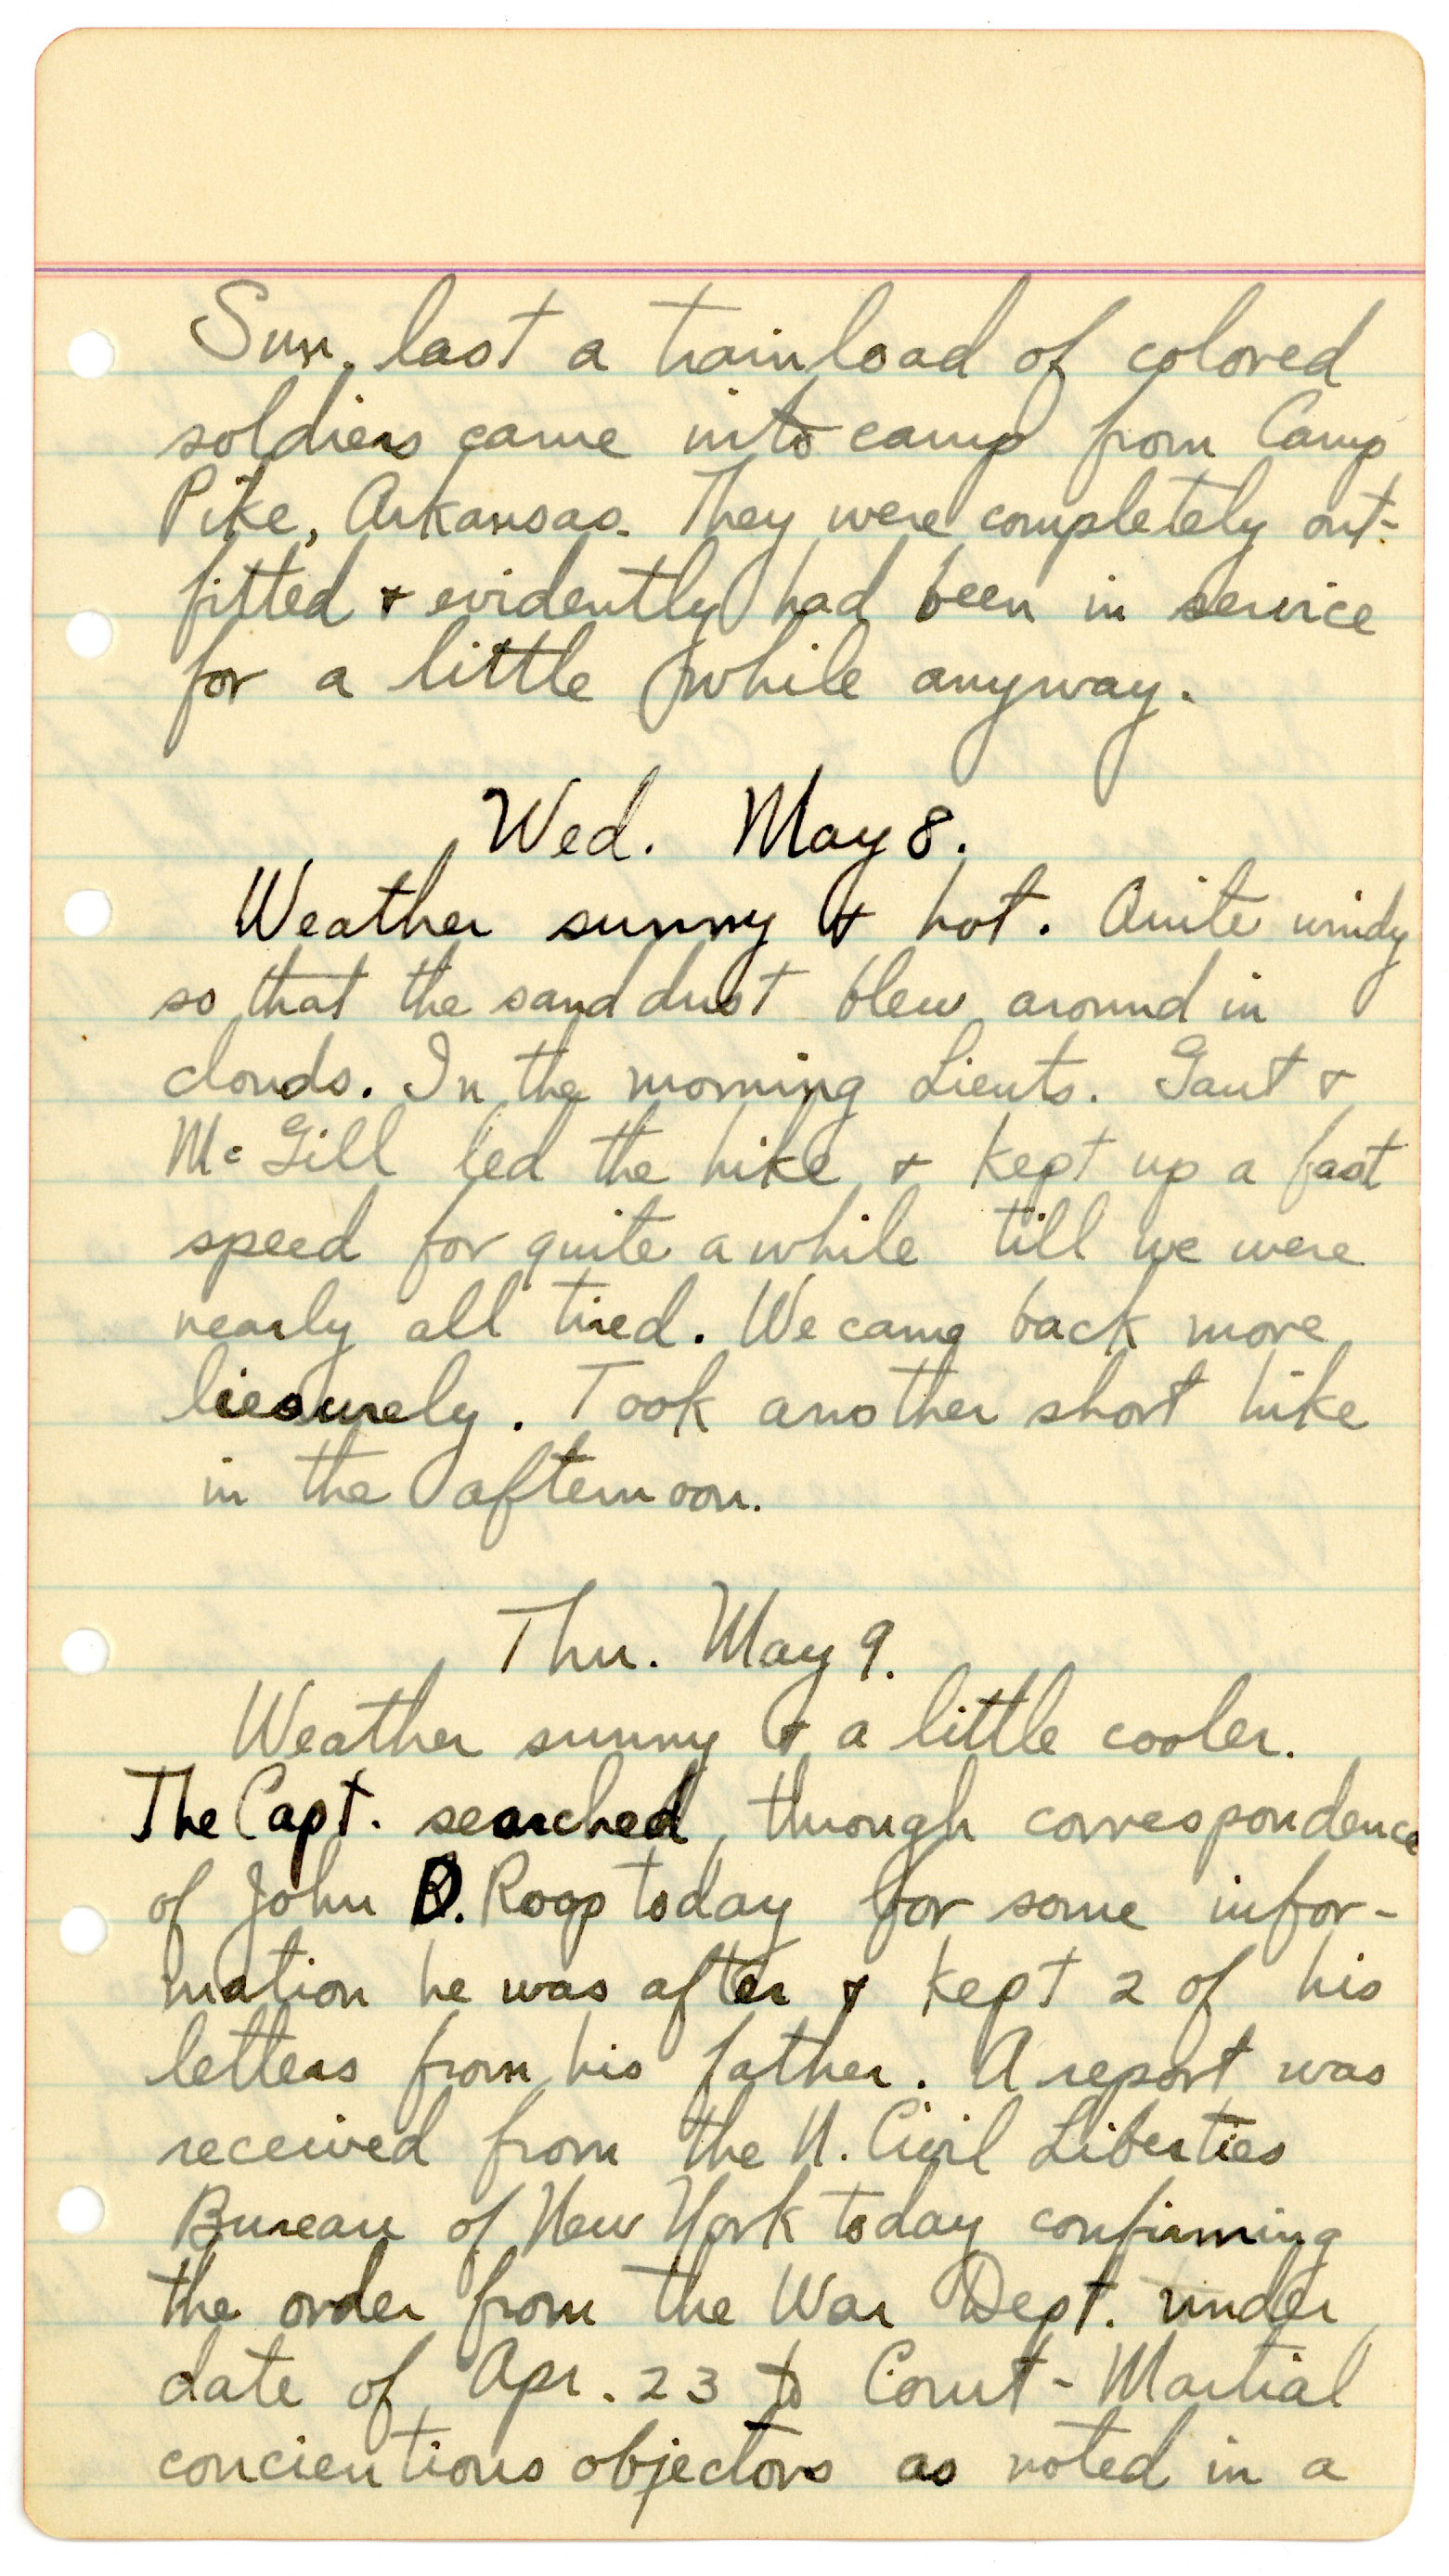 Sun. last a trainload of colored
soldiers came into camp from Camp
Pike, Arkansas. They were completely out-
fitted & evidently had been in service
for a little while anyway.
Wed. May 8.
Weather sunny & hot. Quite windy
so that the sand dust blew around in
clouds. In the morning Lieuts. Gaut &
McGill led the hike & kept up a fast
speed for quite a while till we were
nearly all tired. We came back more
liesurely. Took another short hike
in the afternoon.
Thu. May 9.
Weather sunny & a little cooler.
The Capt. searched, through correspondence
of John D. Roop today for some infor-
mation he was after & kept 2 of his
letters from his father. A report was
received from the N. Civil Liberties
Bureau of New York today confirming
the order from the War Dept. under
date of Apr. 23 to Court-Martial
concientious objectors as noted in a